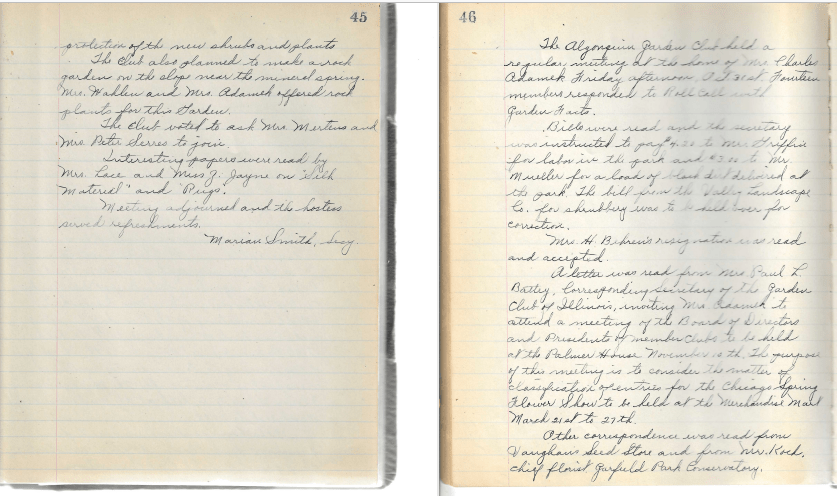 45
protection of the new shrubs and plants
The Club also planned to make a rock
garden on the slope near the mineral spring.
Mrs. Wahlen and Mrs. Adamek offered rock
plants for this Garden.
The club voted to ask Mrs Mertens and
Mrs Peter Serres to join.
Interesting papers were read by
Mrs. Lace and Miss J. Jayne on "Silk
Material" and "Rugs".
Meeting adjourned and the hostess
served refreshments.
Marian Smith, Secy.
46
The Algonquin Garden Club held a
regular meeting at the home of Mrs. Charles
Adamek Friday afternoon, Fourteen
members responded to Roll Call with
Garden Facts.
Bills were read and the secretary
was instructed to pay to Mr. Griffin
for labor in the park and $3.00 to Mr.
Mueller for a load of black dirt delivered at
the park. The bill from the Valley Landscape
Co. for shrubbery was to be held over for
correction.
Mrs. H. Behren's resignation was read
and accepted.
A letter was read from Mrs. Paul L.
Battey, Corresponding Secretary of the Garden
Club of Illinois, inviting Mrs. Adamek to
attend a meeting of the Board of Directors
and Presidents of member clubs to be held
at the Palmer House November th. The purpose
of this meeting is to consider the matter of
classification of entries for the Chicago Spring
Flower Show to be held at the Merchandise Mart
March 21st to 27th.
Other correspondence was read from
Vaughans Seed Store and from Mr. Koch,
chief florist Garfield Park Conservatory.